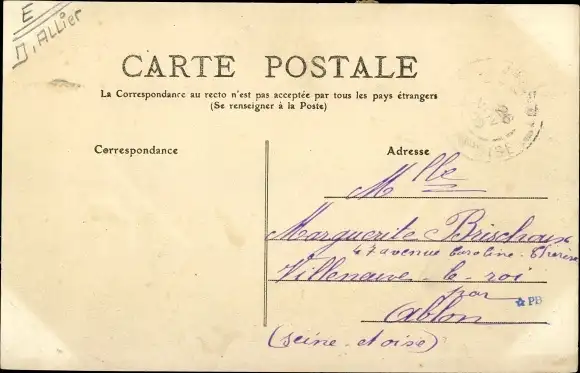 E
D. Allier
CARTE POSTALE
La Correspondance au recto n'est pas acceptée par tous les pays étrangers
(Se renseigner à la Poste)
Correspondance
Adresse
Mlle
Marguerite Brischoux
47 avenue Caroline-Thérèse
Villeneuve-le-roi
par
Ablon
(seine-et-oise)
PB